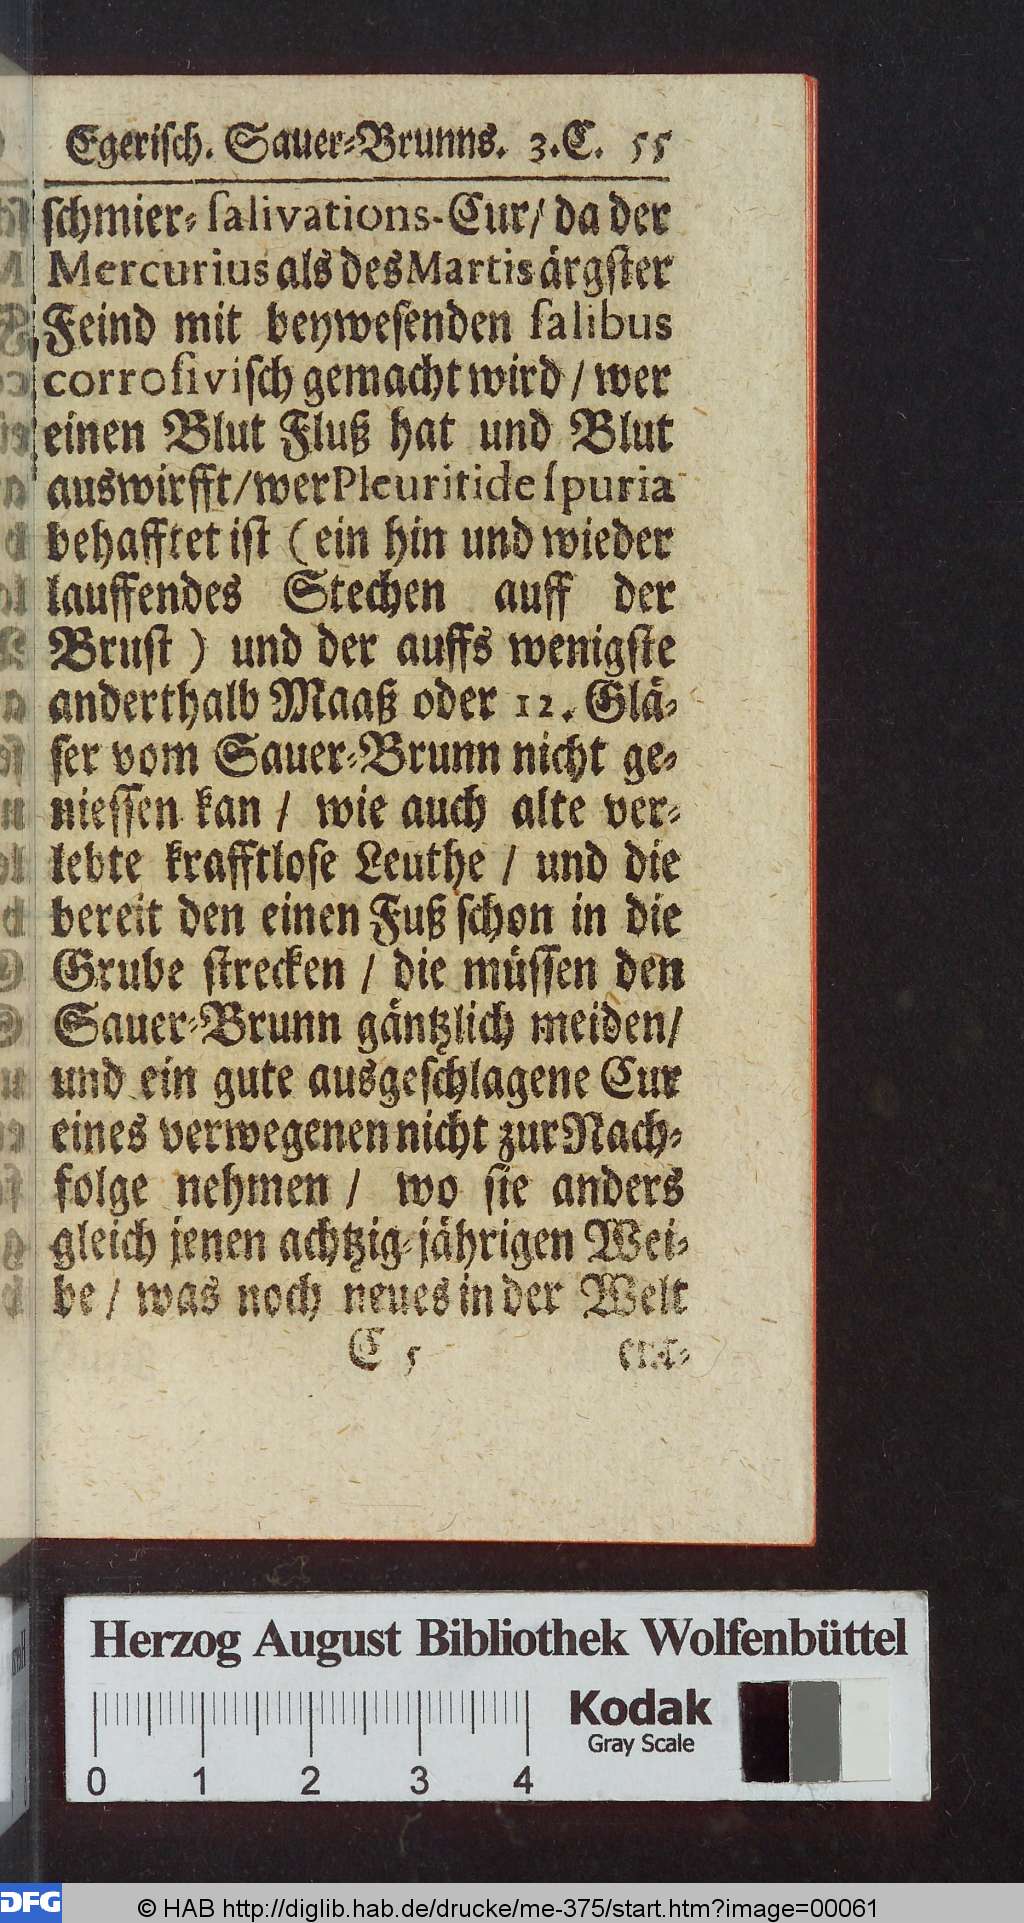 Egerisch. Sauer-Brunns. 3.C. 55
schmier- salivations-Cur/ da der
Mercurius als des Martis ärgster
Feind mit beywesenden salibus
corrosivisch gemacht wird / wer
einen Blut Fluß hat und Blut
auswirfft/wer Pleuritide spuria
behafftet ist ( ein hin und wieder
lauffendes Stechen auff der
Brust ) und der auffs wenigste
anderthalb Maaß oder 12. Glä-
ser vom Sauer-Brunn nicht ge-
niessen kan / wie auch alte ver-
lebte krafftlose Leuthe / und die
bereit den einen Fuß schon in die
Grube strecken / die müssen den
Sauer-Brunn gäntzlich meiden/
und ein gute ausgeschlagene Cur
eines verwegenen nicht zur Nach-
folge nehmen / wo sie anders
gleich jenen achtzig-jährigen Wei-
be / was noch neues in der Welt
C 5
Herzog August Bibliothek Wolfenbüttel
Kodak
Gray Scale
0 1 2 3 4
DFG
© HAB http://diglib.hab.de/drucke/me-375/start.htm?image=00061